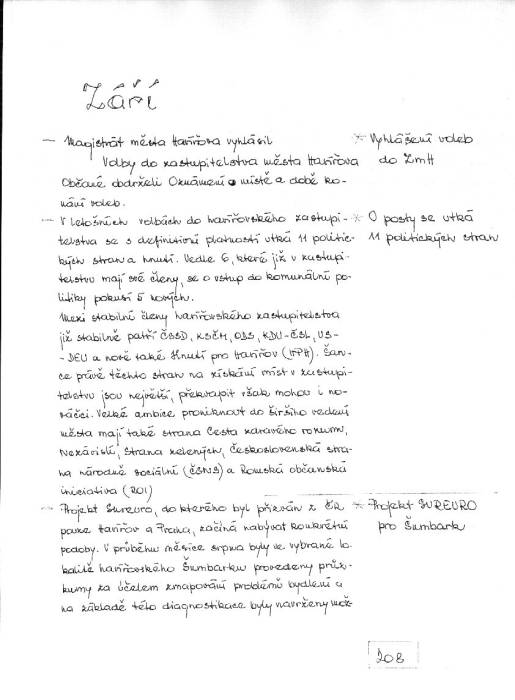 Září
– Magistrát města Havířova vyhlásil
Volby do zastupitelstva města Havířova
Občané obdrželi Oznámení o místě a době ko-
nání voleb.
* Vyhlášení voleb
do ZmH
– V letošních volbách do havířovského zastupi-
telstva se s definitivní platností utká 11 politic-
kých stran a hnutí. Vedle 6, které již v zastupi-
telstvu mají své členy, se o vstup do komunální po-
litiky pokusí 5 nových.
Mezi stabilní členy havířovského zastupitelstva
již stabilně patří ČSSD, KSČM, ODS, KDU-ČSL, US-
-DEU a nově také Hnutí pro Havířov (HPH). Šan-
ce právě těchto stran na získání míst v zastupi-
telstvu jsou největší, překvapit však mohou i no-
váčci. Velké ambice proniknout do širšího vedení
města mají také strana Cesta zdravého rozumu,
Nezávislí, Strana zelených, Československá stra-
na národně sociální (ČSNS) a Romská občanská
iniciativa (ROI)
* O posty se utká
11 politických stran
– Projekt Sureuro, do kterého byl přizván z ČR
pouze Havířov a Praha, začíná nabývat konkrétní
podoby. V průběhu měsíce srpna byly ve vybrané lo-
kalitě havířovského Šumbarku provedeny průz-
kumy za účelem zmapování problémů bydlení a
na základě této diagnostikace byly navrženy mož-
* Projekt SUREURO
pro Šumbark
208